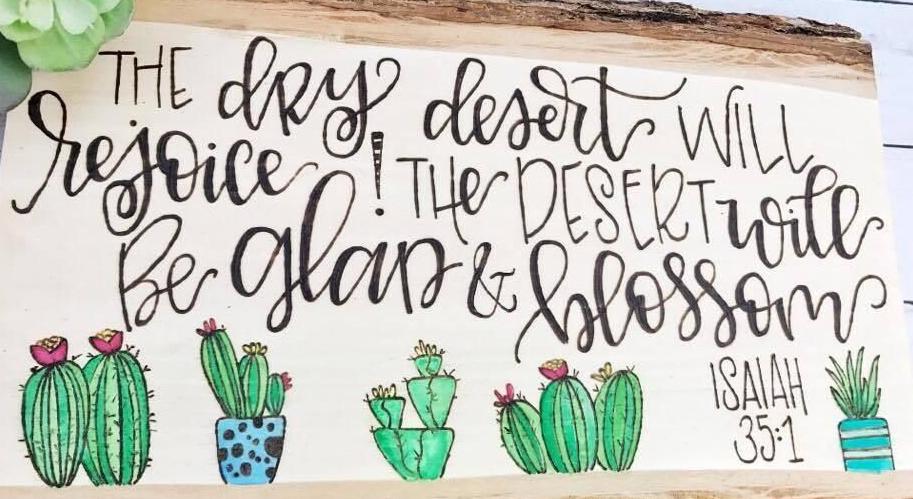 THE dRy desert WILL
rejoice! THe DESERT will
Be glaD & blossom
ISAIAH
35:1